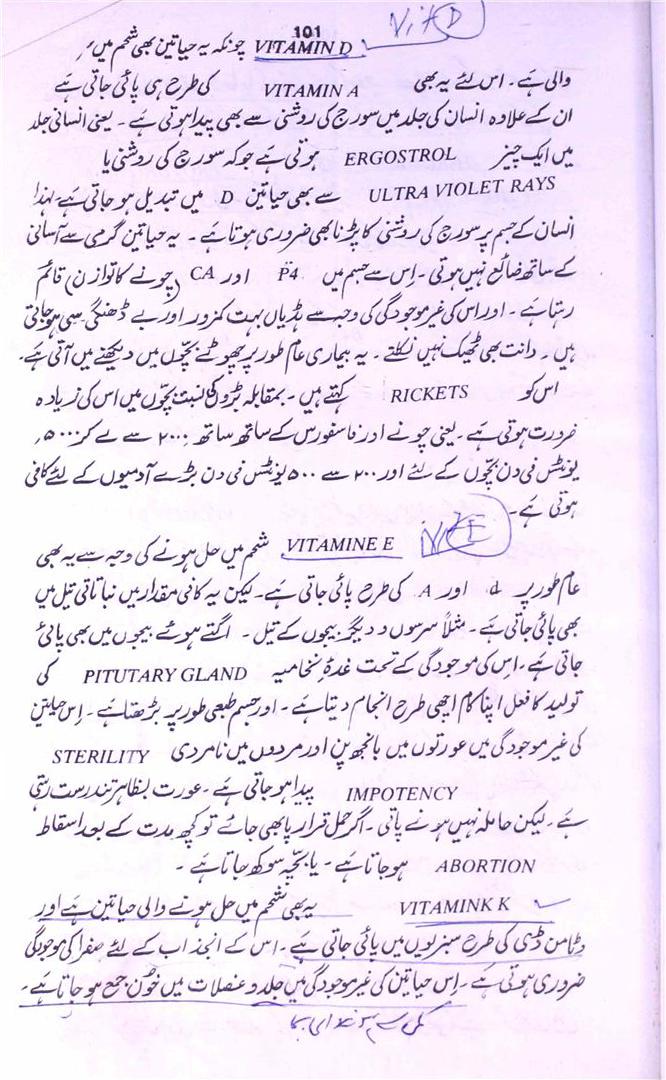 101
Vit D
VITAMIN D چونکہ یہ حیاتین بھی شحم میں
والی ہے۔ اس لئے یہ بھی VITAMIN A کی طرح ہی پائی جاتی ہے
ان کے علاوہ انسان کی جلد میں سورج کی روشنی سے بھی پیدا ہوتی ہے۔ یعنی انسانی جلد
میں ایک چیز ERGOSTROL ہوتی ہے جو کہ سورج کی روشنی یا
ULTRA VIOLET RAYS سے بھی حیاتین D میں تبدیل ہو جاتی ہے لہٰذا
انسان کے جسم پر سورج کی روشنی کا پڑنا بھی ضروری ہوتا ہے۔ یہ حیاتین گرمی سے آسانی
کے ساتھ ضائع نہیں ہوتی۔ اس سے جسم میں P4 اور CA (چونے کا توازن) قائم
رہتا ہے۔ اور اس کی غیر موجودگی کی وجہ سے ہڈیاں بہت کمزور اور بے ڈھنگی سی ہو جاتی
ہیں۔ دانت بھی ٹھیک نہیں نکلتے۔ یہ بیماری عام طور پر چھوٹے بچّوں میں دیکھنے میں آتی ہے۔
اس کو RICKETS کہتے ہیں۔ بمقابلہ بڑوں کی نسبت بچّوں میں اس کی زیادہ
ضرورت ہوتی ہے۔ یعنی چونے اور فاسفورس کے ساتھ ساتھ ۲۰۰۰ سے لے کر ۵۰۰۰
یونٹس فی دن بچّوں کے لئے اور ۲۰۰ سے ۵۰۰ یونٹس فی دن بڑے آدمیوں کے لئے کافی
ہوتی ہے۔
Vit E
VITAMINE E شحم میں حل ہونے کی وجہ سے یہ بھی
عام طور پر d اور A کی طرح پائی جاتی ہے۔ لیکن یہ کافی مقدار میں نباتاتی تیل میں
بھی پائی جاتی ہے۔ مثلاً سرسوں و دیگر بیجوں کے تیل۔ اگتے ہوئے بیجوں میں بھی پائی
جاتی ہے۔ اس کی موجودگی کے تحت غدۂ نخامیہ PITUTARY GLAND کی
تولید کا فعل اپنا کام اچھی طرح انجام دیتا ہے۔ اور جسم طبعی طور پر بڑھتا ہے۔ اس حیاتین
کی غیر موجودگی میں عورتوں میں بانجھ پن اور مردوں میں نامردی STERILITY
IMPOTENCY پیدا ہو جاتی ہے۔ عورت بظاہر تندرست رہتی
ہے۔ لیکن حاملہ نہیں ہونے پاتی۔ اگر حمل قرار پا بھی جائے تو کچھ مدت کے بعد اسقاط
ABORTION ہو جاتا ہے۔ یا بچّہ سوکھ جاتا ہے۔
VITAMINK K یہ بھی شحم میں حل ہونے والی حیاتین ہے اور
وٹامن ڈی کی طرح سبزیوں میں پائی جاتی ہے۔ اس کے انجذاب کے لئے صفرا کی موجودگی
ضروری ہوتی ہے۔ اس حیاتین کی غیر موجودگی میں جلد و عضلات میں خون جمع ہو جاتا ہے۔